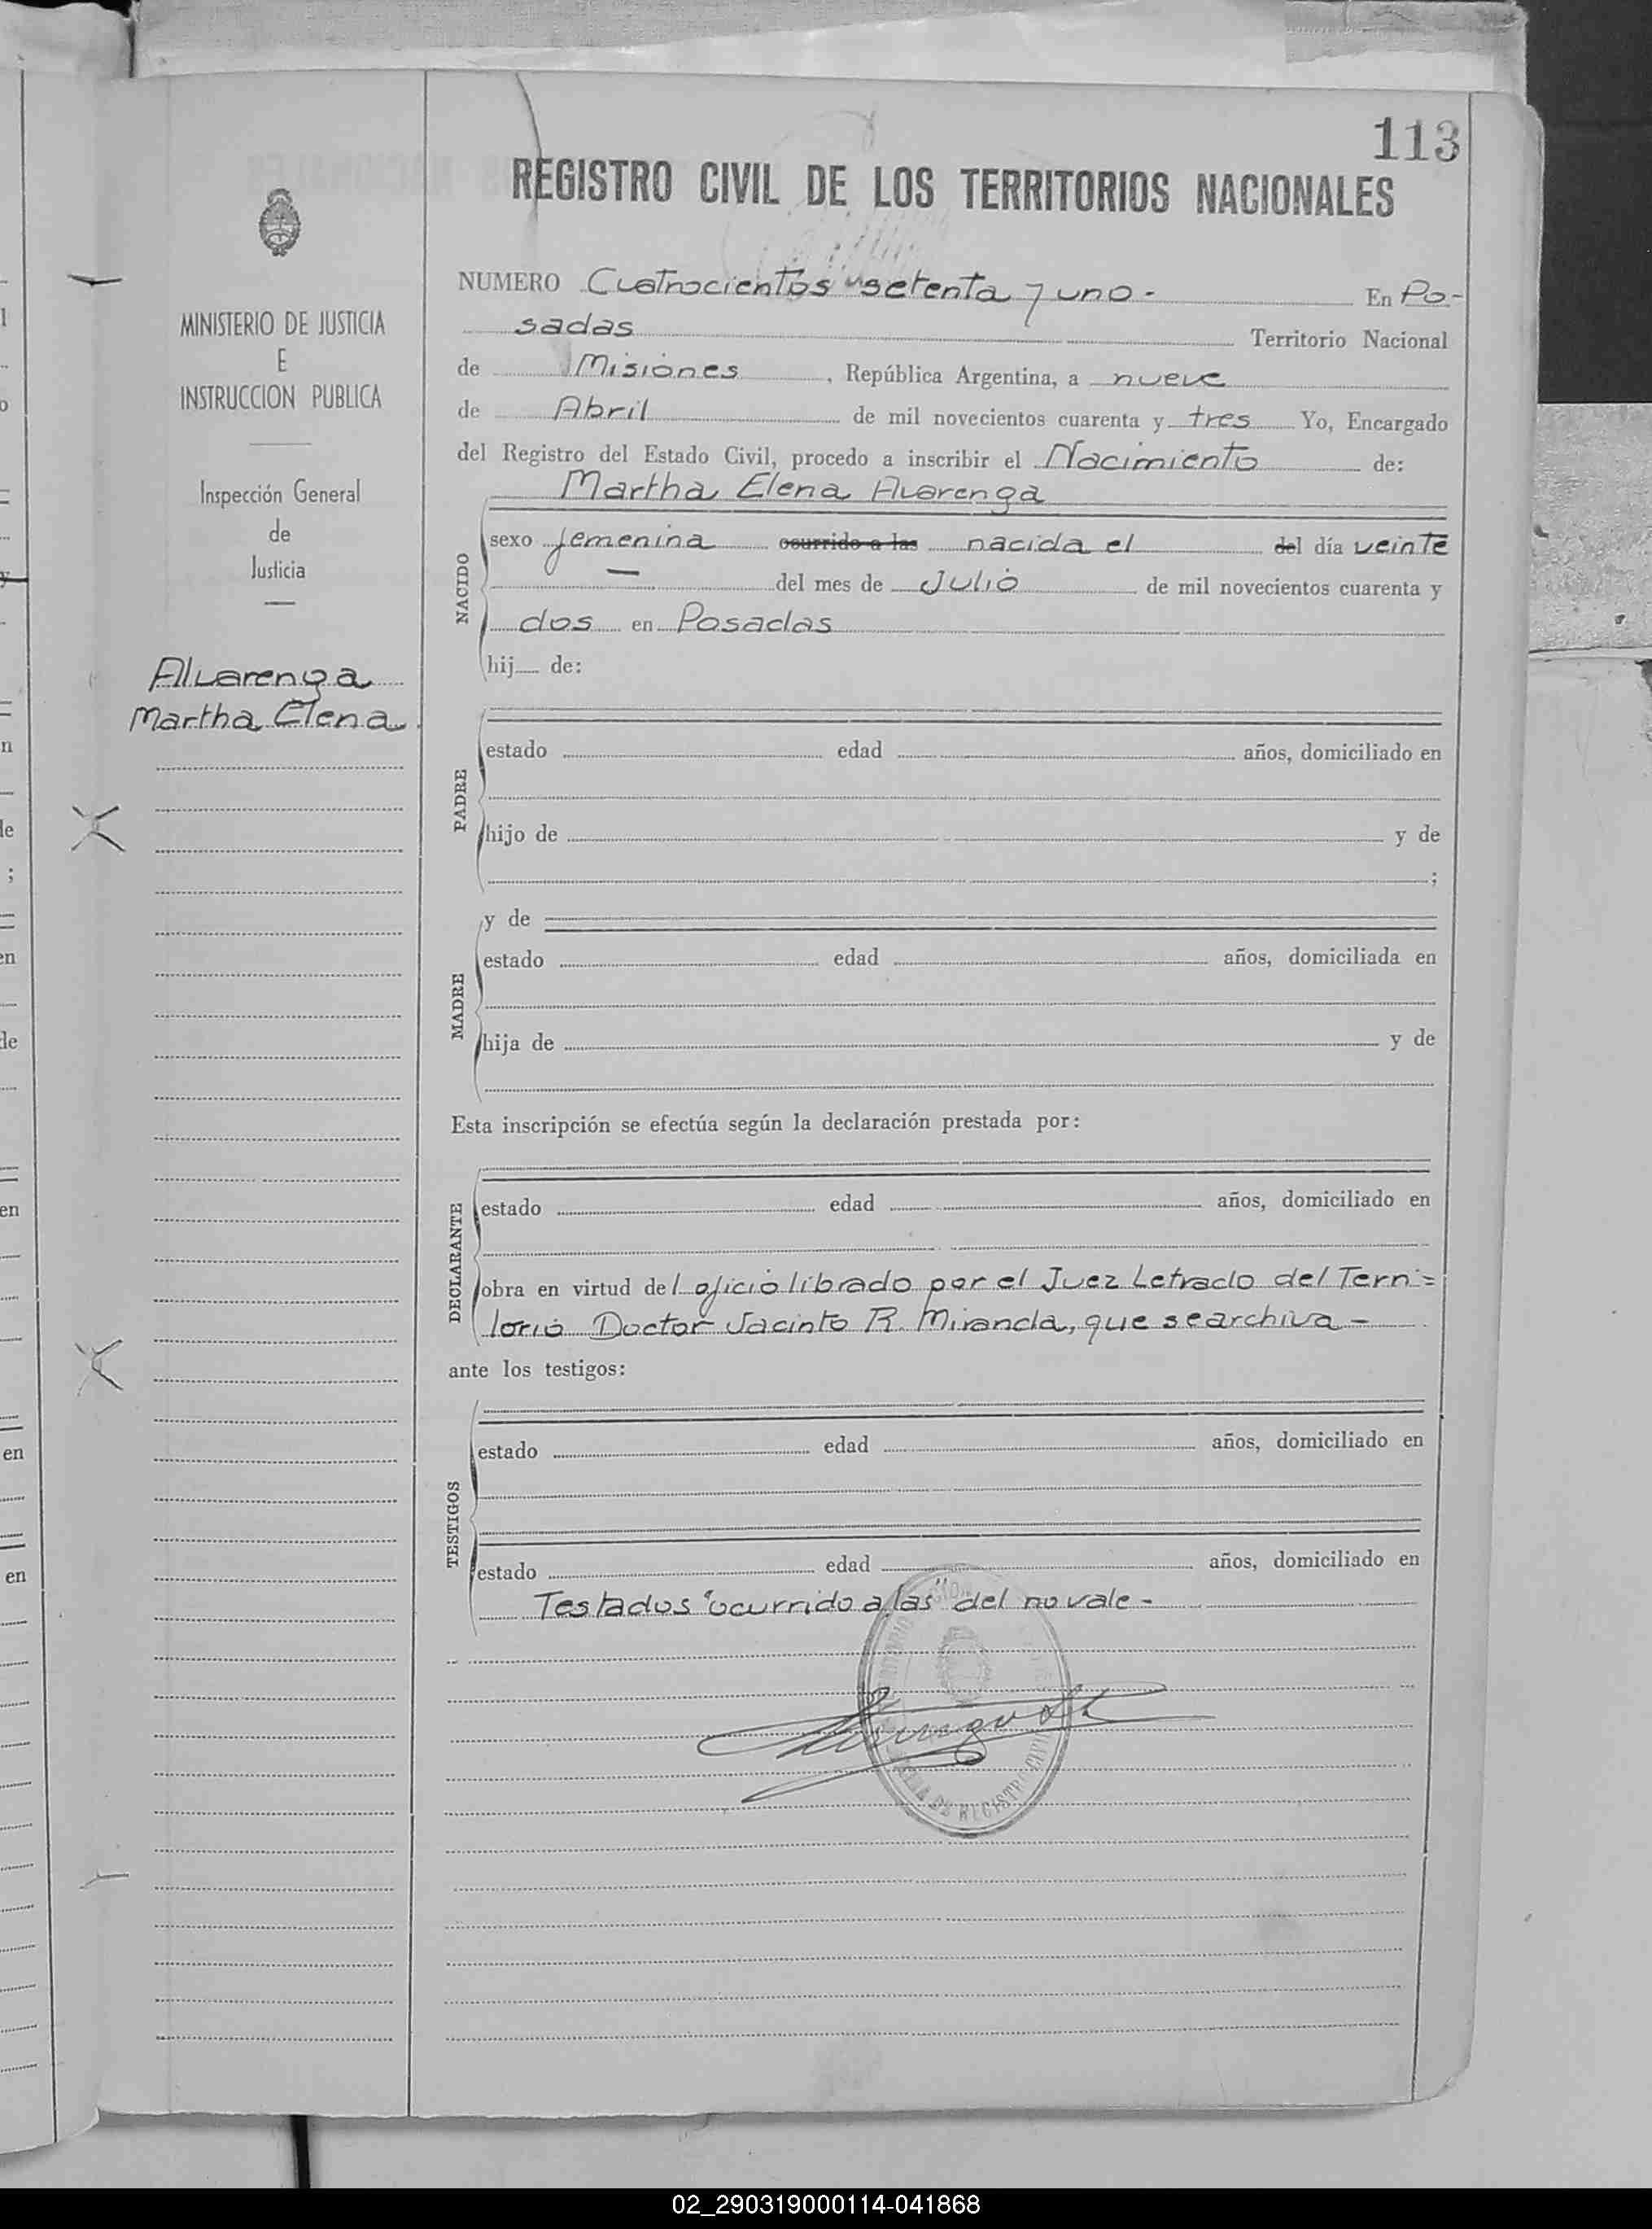 113
REGISTRO CIVIL DE LOS TERRITORIOS NACIONALES
MINISTERIO DE JUSTICIA
E
INSTRUCCION PUBLICA
Inspección General
de
Justicia
Alvarenga
Martha Elena
NUMERO Cuatrocientos setenta y uno - En Po-
sadas Territorio Nacional
de Misiones, República Argentina, a nueve
de Abril de mil novecientos cuarenta y tres Yo, Encargado
del Registro del Estado Civil, procedo a inscribir el Nacimiento de:
Martha Elena Alvarenga
NACIDO
sexo femenina ocurrido a las nacida el del día veinte
— del mes de Julio de mil novecientos cuarenta y
dos en Posadas
hij de:
PADRE
estado edad años, domiciliado en
hijo de y de
;
MADRE
y de
estado edad años, domiciliada en
hija de y de
Esta inscripción se efectúa según la declaración prestada por:
DECLARANTE
estado edad años, domiciliado en
obra en virtud del oficio librado por el Juez Letrado del Terri=
torio Doctor Jacinto R. Miranda, que se archiva -
ante los testigos:
TESTIGOS
estado edad años, domiciliado en
estado edad años, domiciliado en
Testados "ocurrido a las" del no vale -
DE REGISTRO CIVIL
02_290319000114-041868